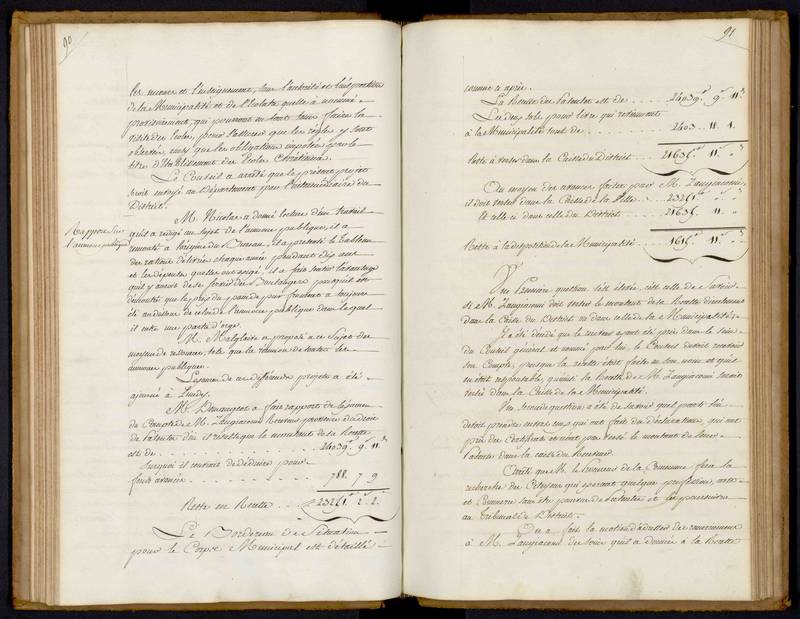 90
les mœurs et l'enseignement, sous l'autorité et l'inspection
de la Municipalité et de l'Ecolatre quelle a nommé
provisoirement, qui pourront en tout tems faire la
visite des Ecoles, pour s'assurer que les regles y sont
observées, ainsi que les obligations imposées par le
titre d'Etablissement des Ecoles Chrétiennes.
Le Conseil a arrêté que le présent projet
seroit envoyé au Département par l'intermédiaire du
District.
Rapport sur
l'aumone publique
M. Nicolas a donné lecture d'un travail
qu'il a rédigé au sujet de l'aumone publique, il a
remonté à l'origine du Bureau, il a présenté le tableau
des rations délivrées chaque année pendant dix ans
et les dépenses quelles ont exigé. il a fait sentir l'avantage
qu'il y auroit de se servir des Boulangers puisqu'il est
démontré que le prix du pain de pur froment a toujours
été au dessous de celui de l'aumone publique dans lequel
il entre une partie d'orge.
M. Malglaive a proposé à ce sujet des
moyens de ressource, tels que la réunion de toutes les
aumones publiques.
L'examen de ces différents projets a été
ajourné à Lundy.
M. a fait rapport de l'examen
du Compte de M. Laugiacomi Receveur provisoire du droit
de Patentes d'où il résulte que le montant de sa Recette
est de . . . . 24039.lt 9.s 11.d
Sur quoi il convient de déduire pour
frais avancés . . . 788. 7 9
Reste en Recette . . . 23251. 2. 2.
Le Bordereau de Situation
pour le Corps Municipal est détaillé
91
comme ci après.
La Recette des Patentes est de . . . . 24039.lt 9.s 11.d
Les deux sols pour livre qui retournent
à la Municipalité sont de . . . . 2403 . 18. 1.
Reste à verser dans la Caisse du District . . . 21635.lt 11.s "
Au moyen des avances faites par M. Laugiacomi,
il doit rester dans la Caisse de la Ville . . 23251.lt " "
Et celle ci dans celle du District . . . . 21635. 11. "
Reste à la disposition de la Municipalité . . . 1615.lt 11.s "
Une premiere question s'est élevée, c'est celle de savoir
si M. Laugiacomi doit verser le montant de la Recette directement
dans la Caisse du District ou dans celle de la Municipalité.
Il a été décidé que le receveur ayant été pris dans le sein
du Conseil général et nommé par lui, le Conseil devoit recevoir
son Compte, puisque la recette étoit faite en son nom et qu'il
en étoit responsable, qu'ainsi la Recette de M. Laugiacomi seroit
versée dans la Caisse de la Municipalité.
Une seconde question a été de savoir quel parti l'on
devoit prendre contre ceux qui ont fait des déclarations, qui ont
pris des Certificats et n'ont pas versé le montant de leurs
Patentes dans la caisse du Receveur.
Arrêté que M. le Procureur de la Commune fera la
recherche des Citoyens qui exercent quelque profession, arts
et Commerce sans être pourvus de Patentes et les poursuivra
au Tribunal de District.
On a fait la motion d'adresser des remerciemens
à M. Laugiacomi des soins qu'il a donnés à la Recette